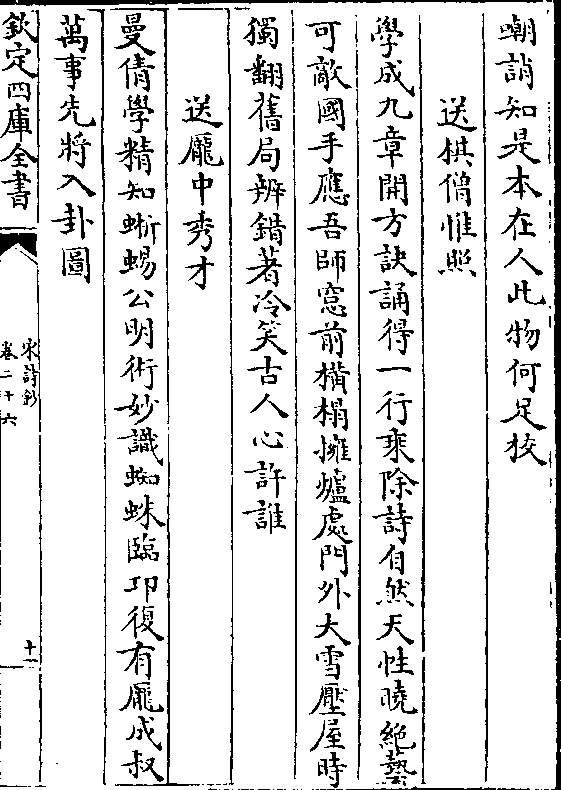 嘲誚知是本在人此物何足挍
送棋僧惟照
學成九章開方訣誦得一行乘除詩自然天性曉絶藝
可敵國手應吾師窓前橫榻擁爐處門外大雪壓屋時
獨翻舊局辨錯著冷笑古人心許誰
送龎中秀才
曼倩學精知蜥蜴公明術妙識蜘蛛臨卭復有龎成叔
萬事先將入卦圖
欽定四庫全書
宋詩鈔
卷二十六
十一